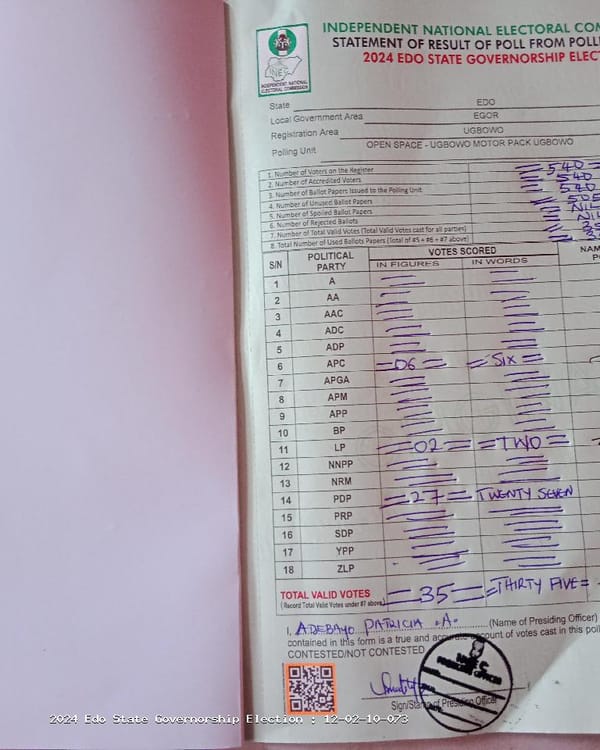 INDEPENDENT NATIONAL ELECTORAL COM
STATEMENT OF RESULT OF POLL FROM POLL
2024 EDO STATE GOVERNORSHIP ELECT
INEC
INDEPENDENT NATIONAL
ELECTORAL COMMISSION
State EDO
Local Government Area EGOR
Registration Area UGBOWO
Polling Unit OPEN SPACE - UGBOWO MOTOR PACK UGBOWO
1. Number of Voters on the Register 540
2. Number of Accredited Voters 540
3. Number of Ballot Papers Issued to the Polling Unit 540
4. Number of Unused Ballot Papers 505
5. Number of Spoiled Ballot Papers NIL
6. Number of Rejected Ballots NIL
7. Number of Total Valid Votes (Total Valid Votes cast for all parties)
8. Total Number of Used Ballots Papers (Total of #5 + #6 + #7 above)
S/N POLITICAL PARTY VOTES SCORED NAM
IN FIGURES IN WORDS
1 A
2 AA
3 AAC
4 ADC
5 ADP
6 APC =06= =SIX=
7 APGA
8 APM
9 APP
10 BP
11 LP =02= =TWO=
12 NNPP
13 NRM
14 PDP =27= TWENTY SEVEN
15 PRP
16 SDP
17 YPP
18 ZLP
TOTAL VALID VOTES =35= =THIRTY FIVE=
(Record Total Valid Votes under #7 above)
I, ADEBAYO PATRICIA .A. (Name of Presiding Officer)
contained in this form is a true and accurate account of votes cast in this poll
CONTESTED/NOT CONTESTED
PRESIDING OFFICER
Sign/Stamp of Presiding Officer
2024 Edo State Governorship Election : 12-02-10-073